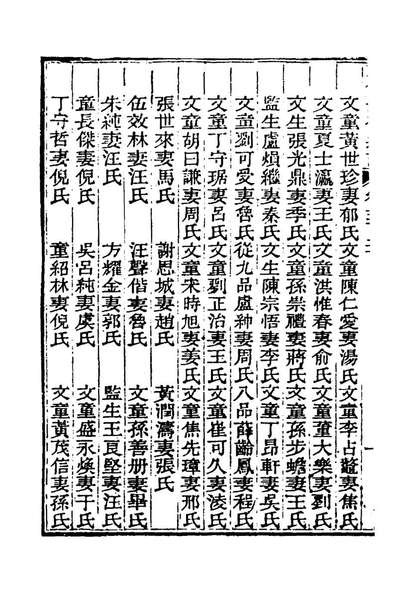 文童黃世珍妻郁氏　文童陳仁愛妻湯氏　文童李占鼇妻焦氏
文童夏士瀛妻王氏　文童洪惟春妻俞氏　文童童大樂妻劉氏
文生張光鼎妻季氏　文童孫崇禮妻蔣氏　文童孫步蟾妻王氏
監生盧熉繼妻秦氏　文生陳宗悟妻李氏　文童丁昂軒妻吳氏
文童劉可愛妻魯氏　從九品盧紳妻周氏　八品薛齡鳳妻程氏
文童丁守琚妻呂氏　文童劉正治妻王氏　文童崔可久妻淩氏
文童胡曰謙妻周氏　文童宋時旭妻姜氏　文童焦先璋妻邢氏
張世來妻馬氏　謝恩城妻趙氏　黃潤濤妻張氏
伍效林妻汪氏　汪聲偕妻魯氏　文童孫善册妻畢氏
朱純妻汪氏　方耀金妻郭氏　監生王良堅妻汪氏
童長傑妻倪氏　吳呂純妻虞氏　文童盛永煥妻干氏
丁守哲妻倪氏　童紹林妻倪氏　文童黃茂信妻孫氏